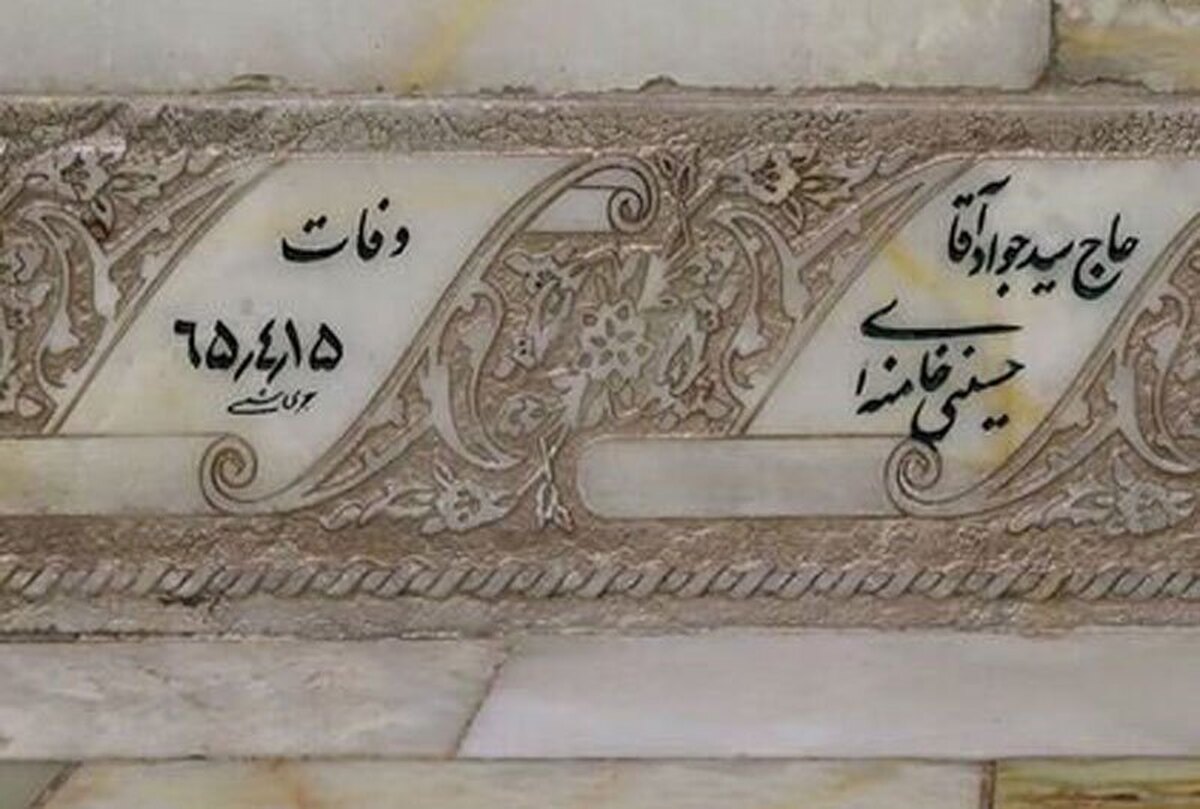 حاج سید جواد آقا
حسینی خامنه ا
ی
وفات
٦۵٫٤٫۱۵
هجری شمسی